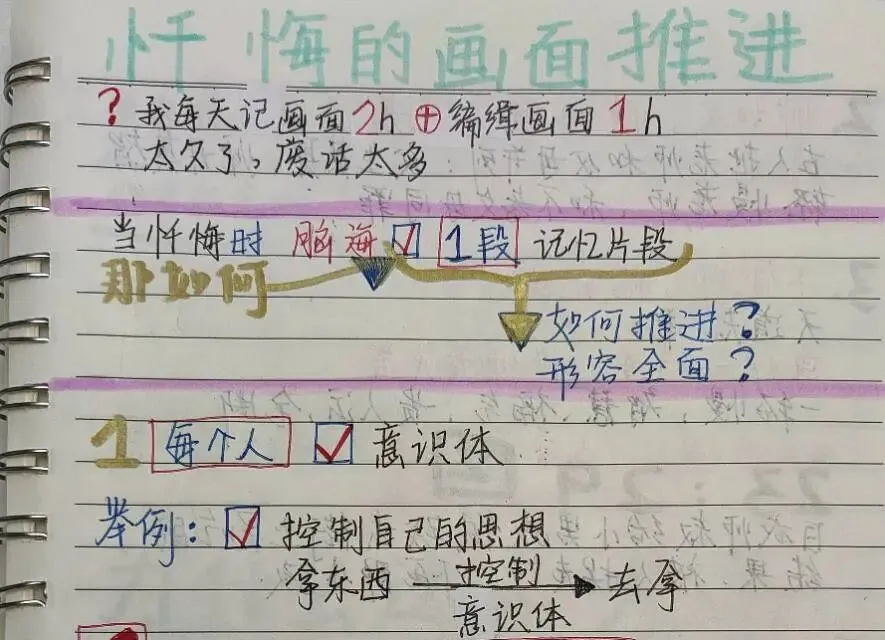 忏悔的画面推进
? 我每天记画面2h ⊕ 编缉画面1h
太久了，废话太多
当忏悔时 脑海 ☑ 1段 记忆片段
那如何
如何推进?
形容全面?
1 每个人 ☑ 意识体
举例: ☑ 控制自己的思想
拿东西 控制 去拿
意识体